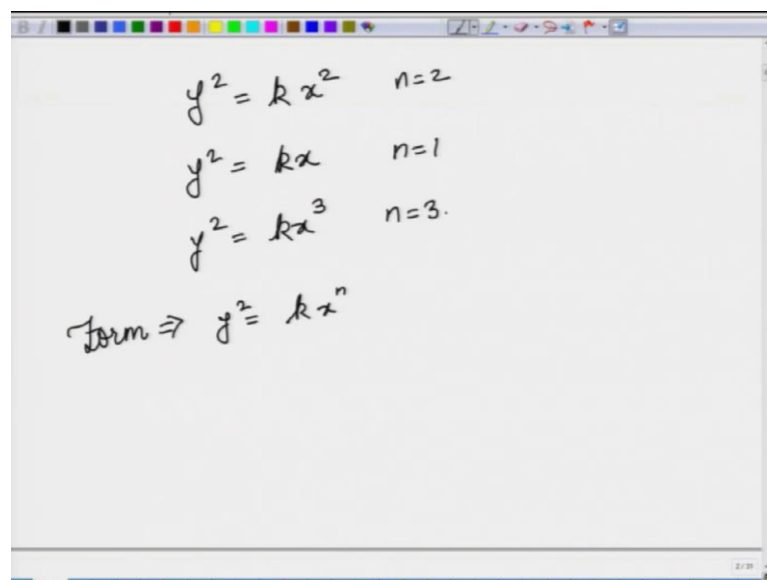 B I
y² = kx² n=2
y² = kx n=1
y² = kx³ n=3.
Form ⇒ y² = kxⁿ
2/31